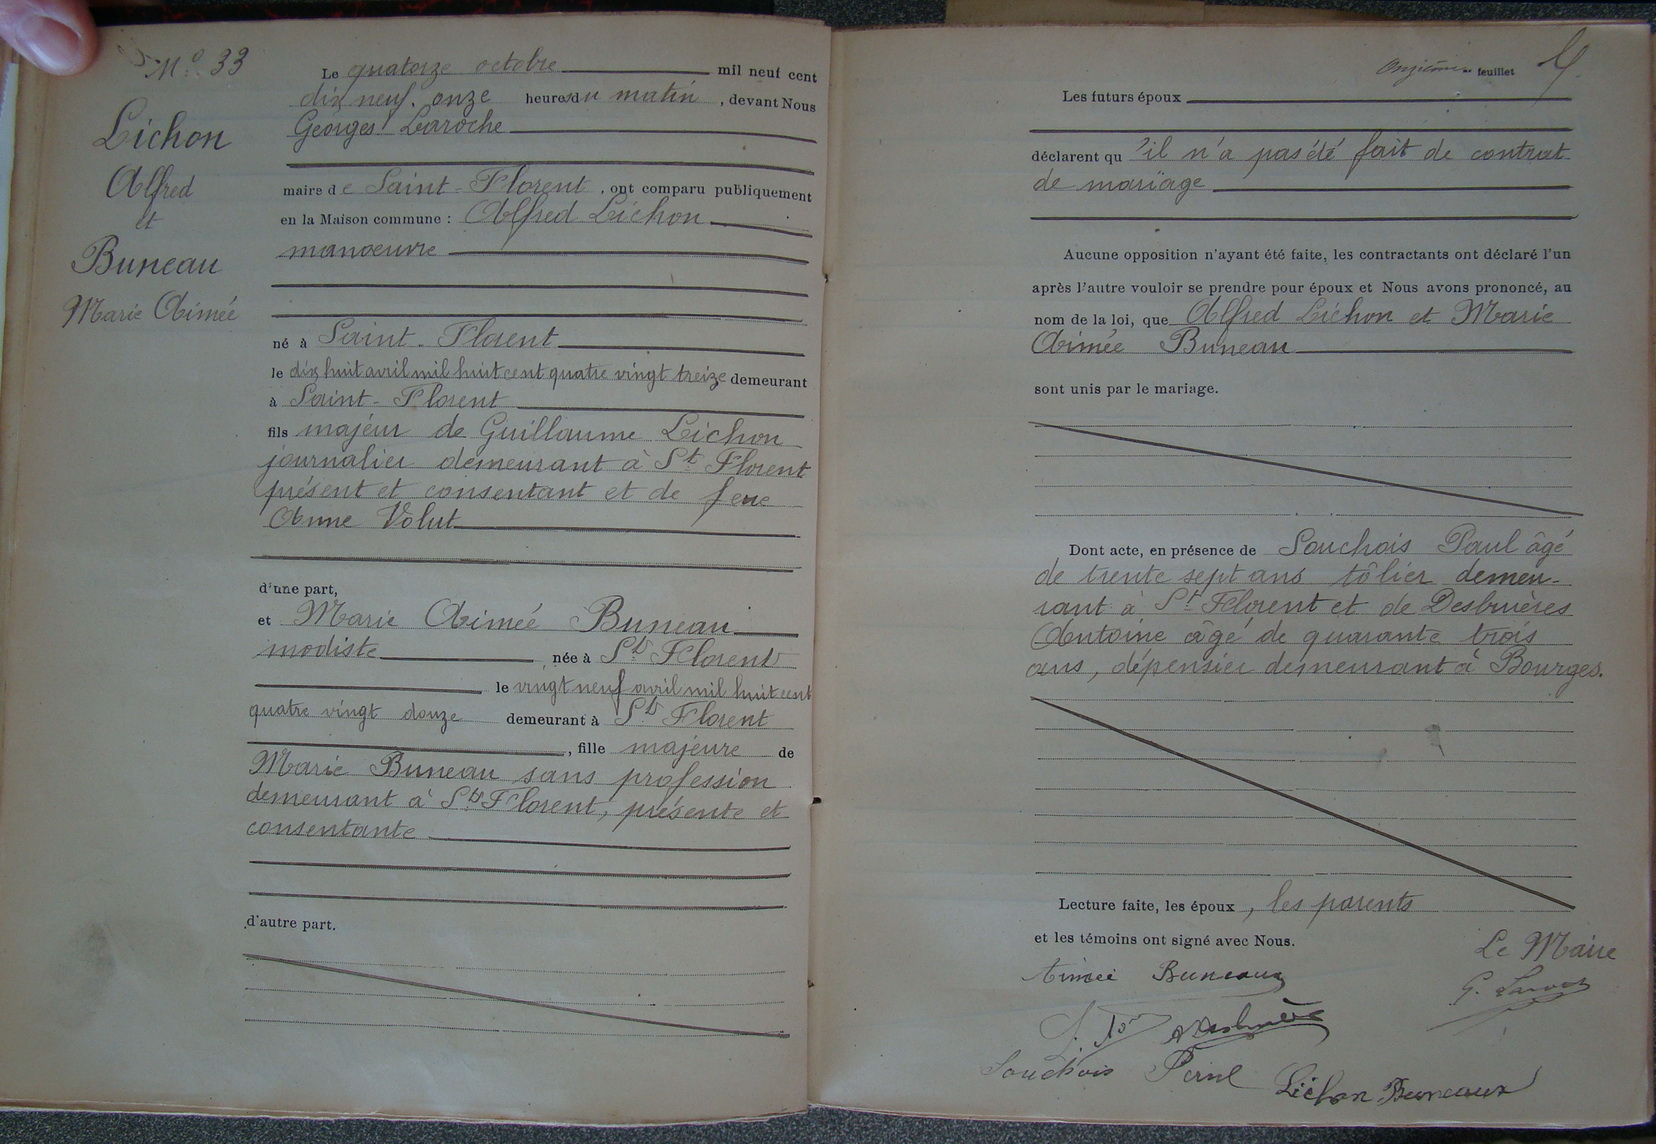 N° 33
Lichon
Alfred
et
Buneau
Marie Aimée
Le quatorze octobre mil neuf cent
dix neuf, onze heures du matin, devant Nous
Georges Laroche
maire de Saint-Florent, ont comparu publiquement
en la Maison commune : Alfred Lichon
manoeuvre
né à Saint-Florent
le dix huit avril mil huit cent quatre vingt treize demeurant
à Saint-Florent
fils majeur de Guillaume Lichon
journalier demeurant à St Florent
présent et consentant et de feue
Anne Volut
d'une part,
et Marie Aimée Buneau
modiste, née à St Florent
le vingt neuf avril mil huit cent
quatre vingt douze demeurant à St Florent
, fille majeure de
Marie Buneau sans profession
demeurant à St Florent, présente et
consentante
d'autre part.
Onzième feuillet
Les futurs époux
déclarent qu'il n'a pas été fait de contrat
de mariage
Aucune opposition n'ayant été faite, les contractants ont déclaré l'un
après l'autre vouloir se prendre pour époux et Nous avons prononcé, au
nom de la loi, que Alfred Lichon et Marie
Aimée Buneau
sont unis par le mariage.
Dont acte, en présence de Souchois Paul âgé
de trente sept ans tôlier demeu-
rant à St Florent et de Desbruères
Antoine âgé de quarante trois
ans, dépensier demeurant à Bourges.
Lecture faite, les époux, les parents
et les témoins ont signé avec Nous.
Le Maire
Aimée Buneaux
G. Laroche
Souchois Paul
Lichon Buneaux